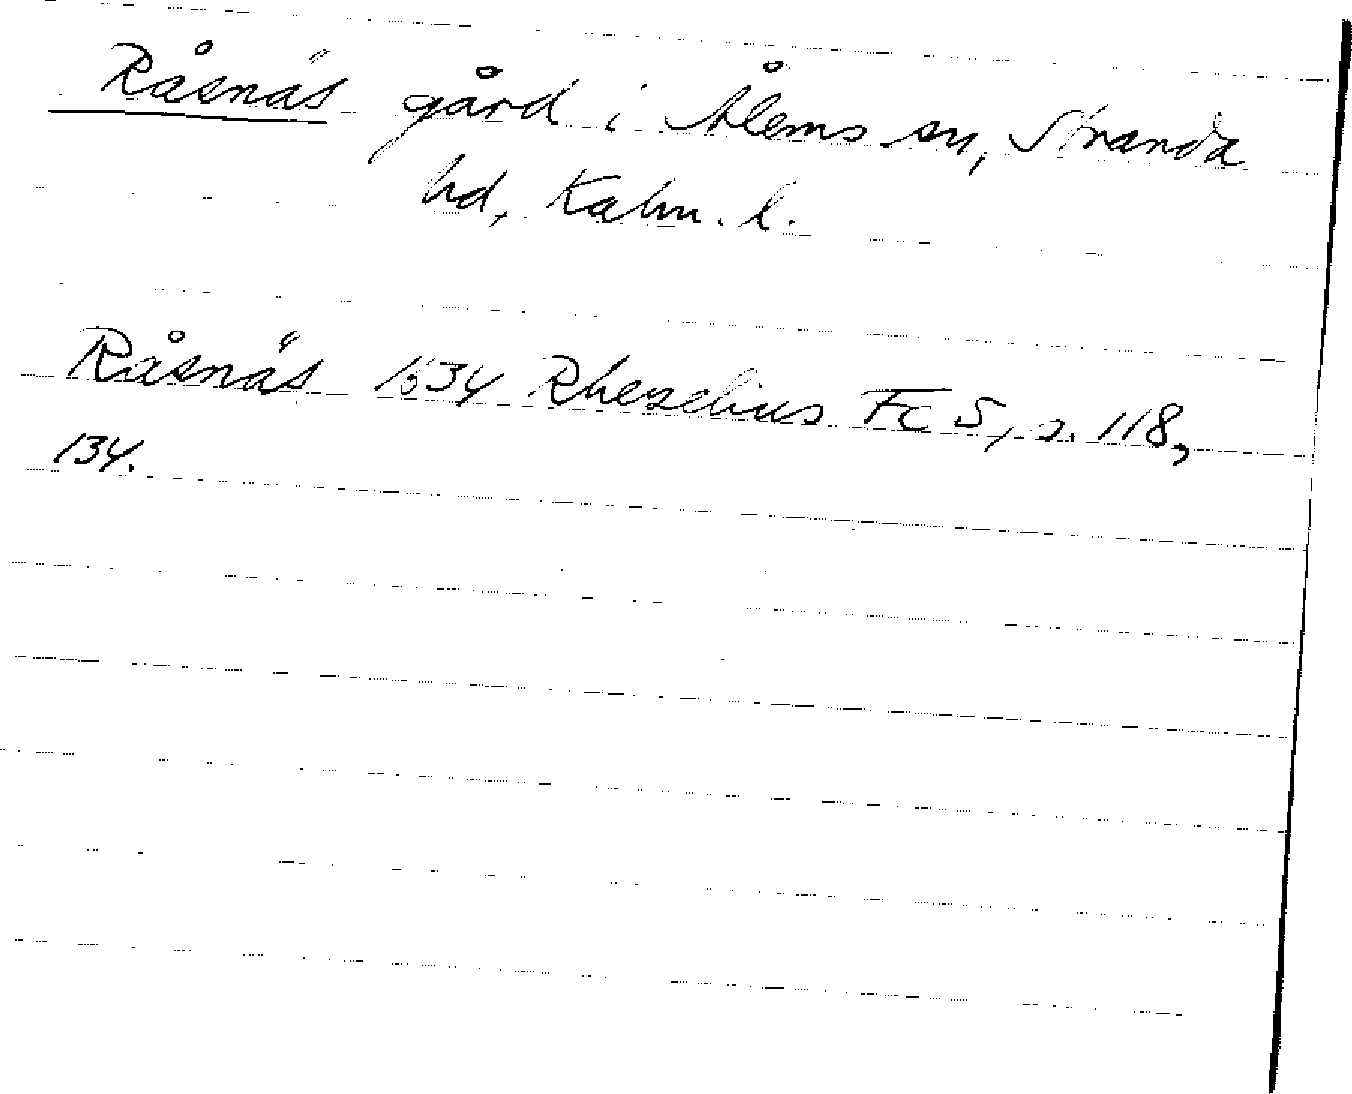 Råsnäs gård i Ålems sn, Stranda
hd, Kalm. l.
Råsnäs 1634 Rhezelius Fc 5, s. 118,
134.